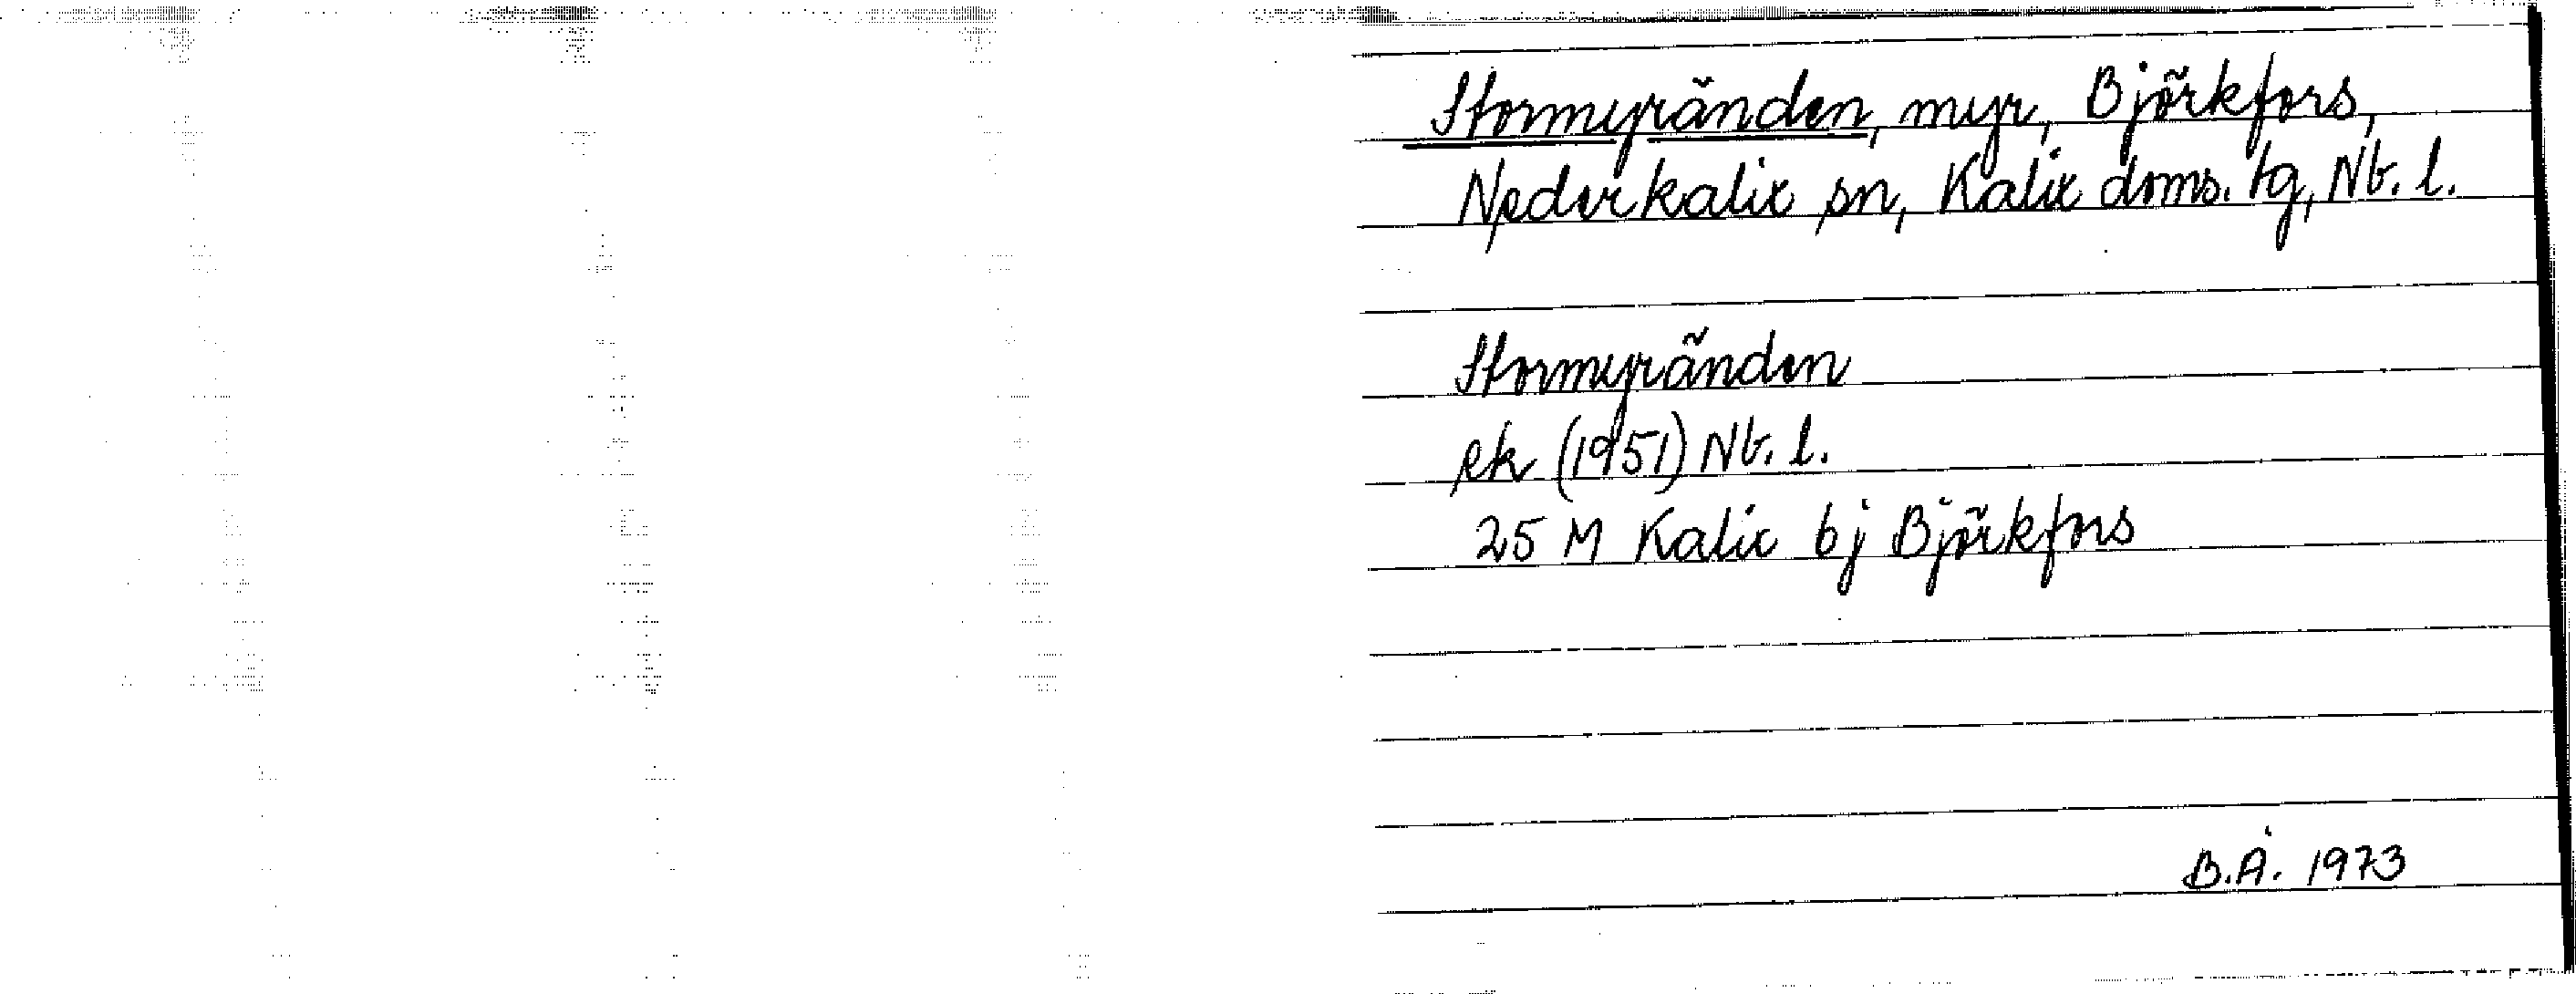 Stormyränden, myr, Björkfors,
Nederkalix sn, Kalix doms. tg, Nb. l.
Stormyränden
ek (1951) Nb. l.
25 M Kalix bj Björkfors
B.Å. 1973